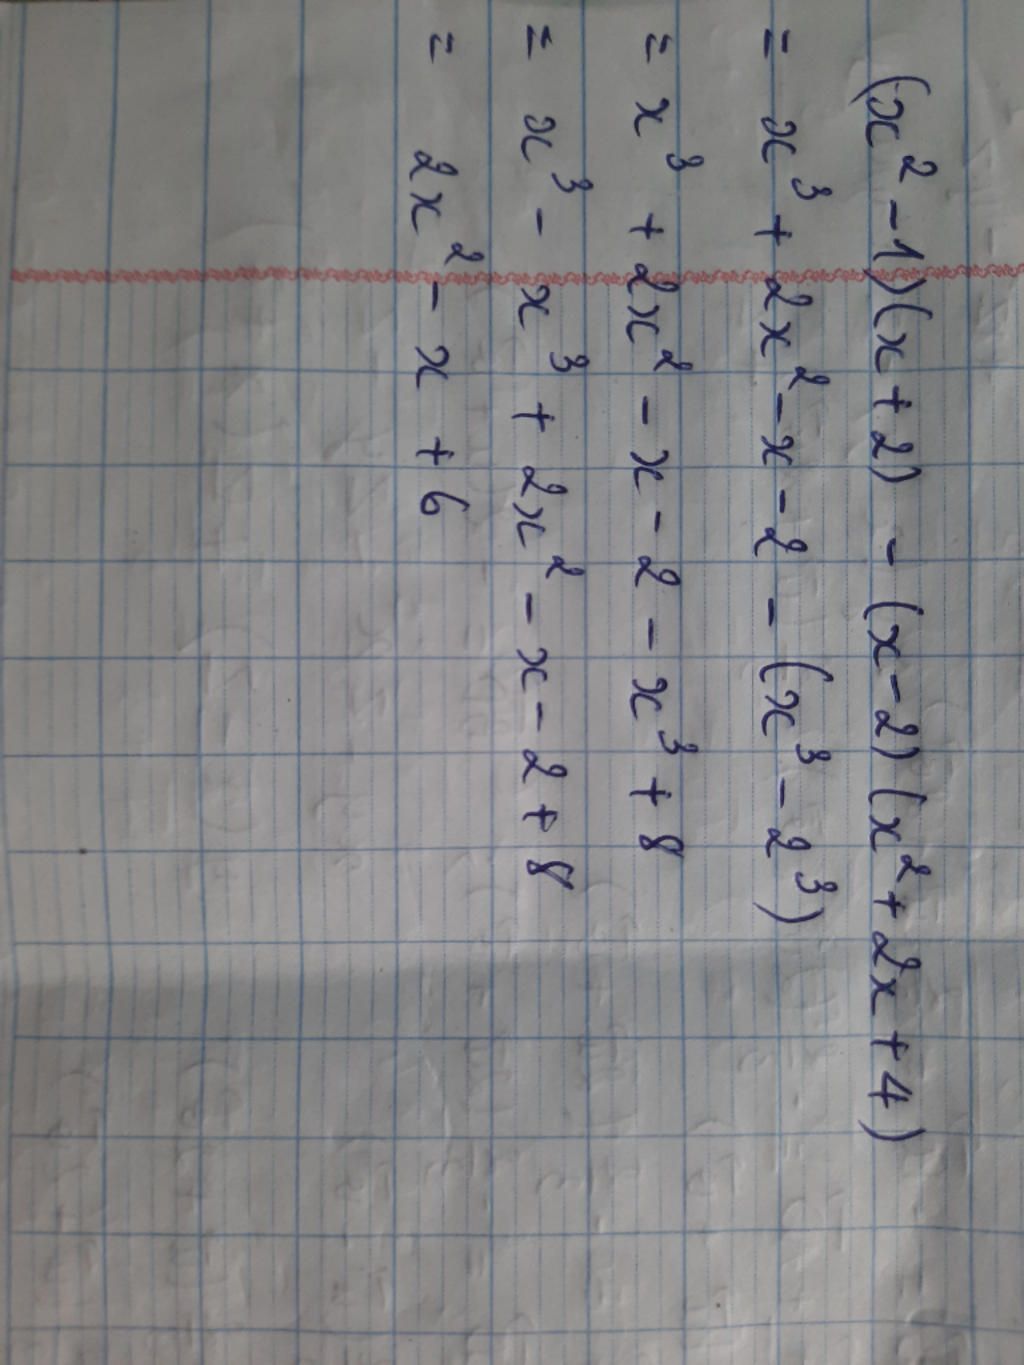 (x² - 1)(x + 2) - (x - 2)(x² + 2x + 4)
= x³ + 2x² - x - 2 - (x³ - 2³)
= x³ + 2x² - x - 2 - x³ + 8
= x³ - x³ + 2x² - x - 2 + 8
= 2x² - x + 6